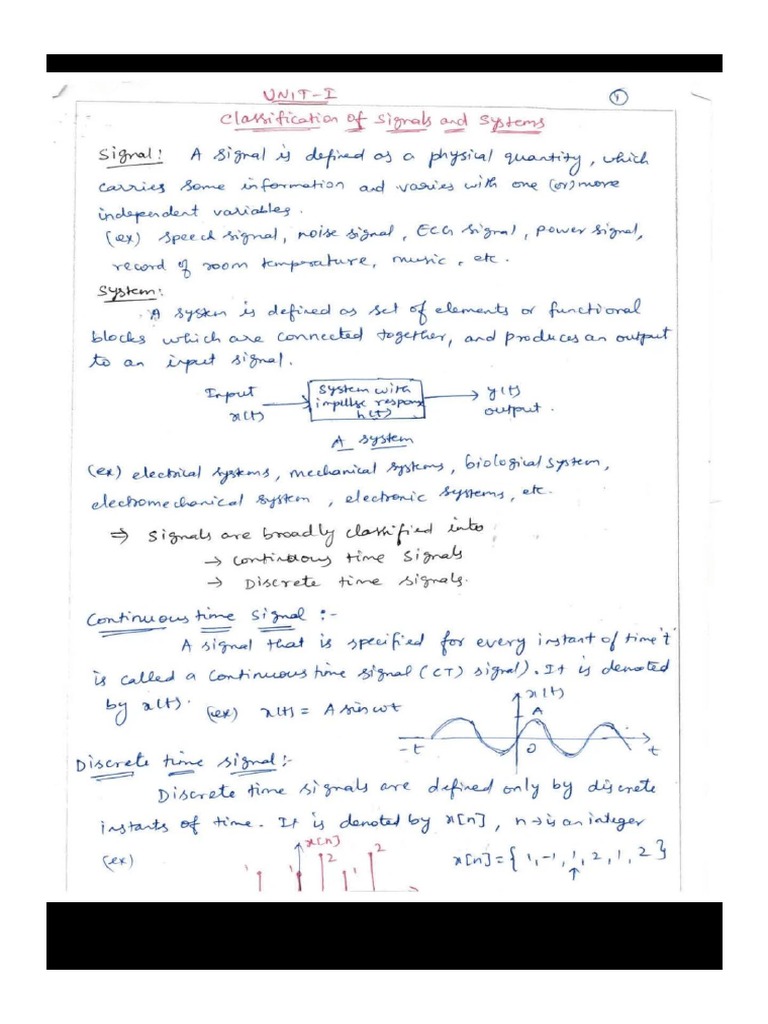 UNIT-I
1
Classification of Signals and Systems
Signal: A signal is defined as a physical quantity, which
carries some information and varies with one (or) more
independent variables.
(ex) speech signal, noise signal, ECG signal, power signal,
record of room temperature, music, etc.
System:
A system is defined as set of elements or functional
blocks which are connected together, and produces an output
to an input signal.
Input
x(t)
System with
impulse response
h(t)
y(t)
output.
A system
(ex) electrical systems, mechanical systems, biological system,
electromechanical system, electronic systems, etc.
⇒ signals are broadly classified into
→ continuous time signals
→ Discrete time signals.
Continuous time signal :-
A signal that is specified for every instant of time 't'
is called a continuous time signal (CT) signal). It is denoted
by x(t). (ex) x(t) = A sin ωt
x(t)
A
-t 0 t
Discrete time signal:-
Discrete time signals are defined only by discrete
instants of time. It is denoted by x[n], n→is an integer
(ex)
x[n]
1 1 2 1 2
x[n] = { 1, -1, 1, 2, 1, 2 }
↑